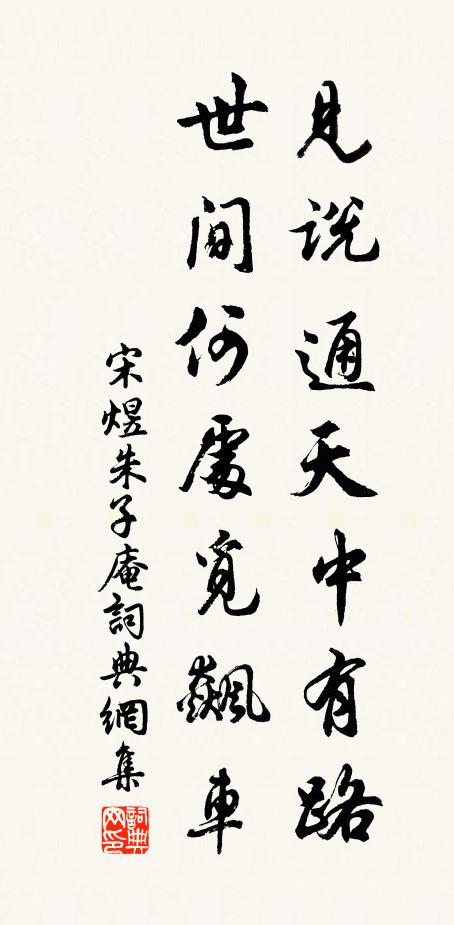 見說通天中有路
世間何處覓飆車
宋煜朱子庵詞典網集
詞典网印